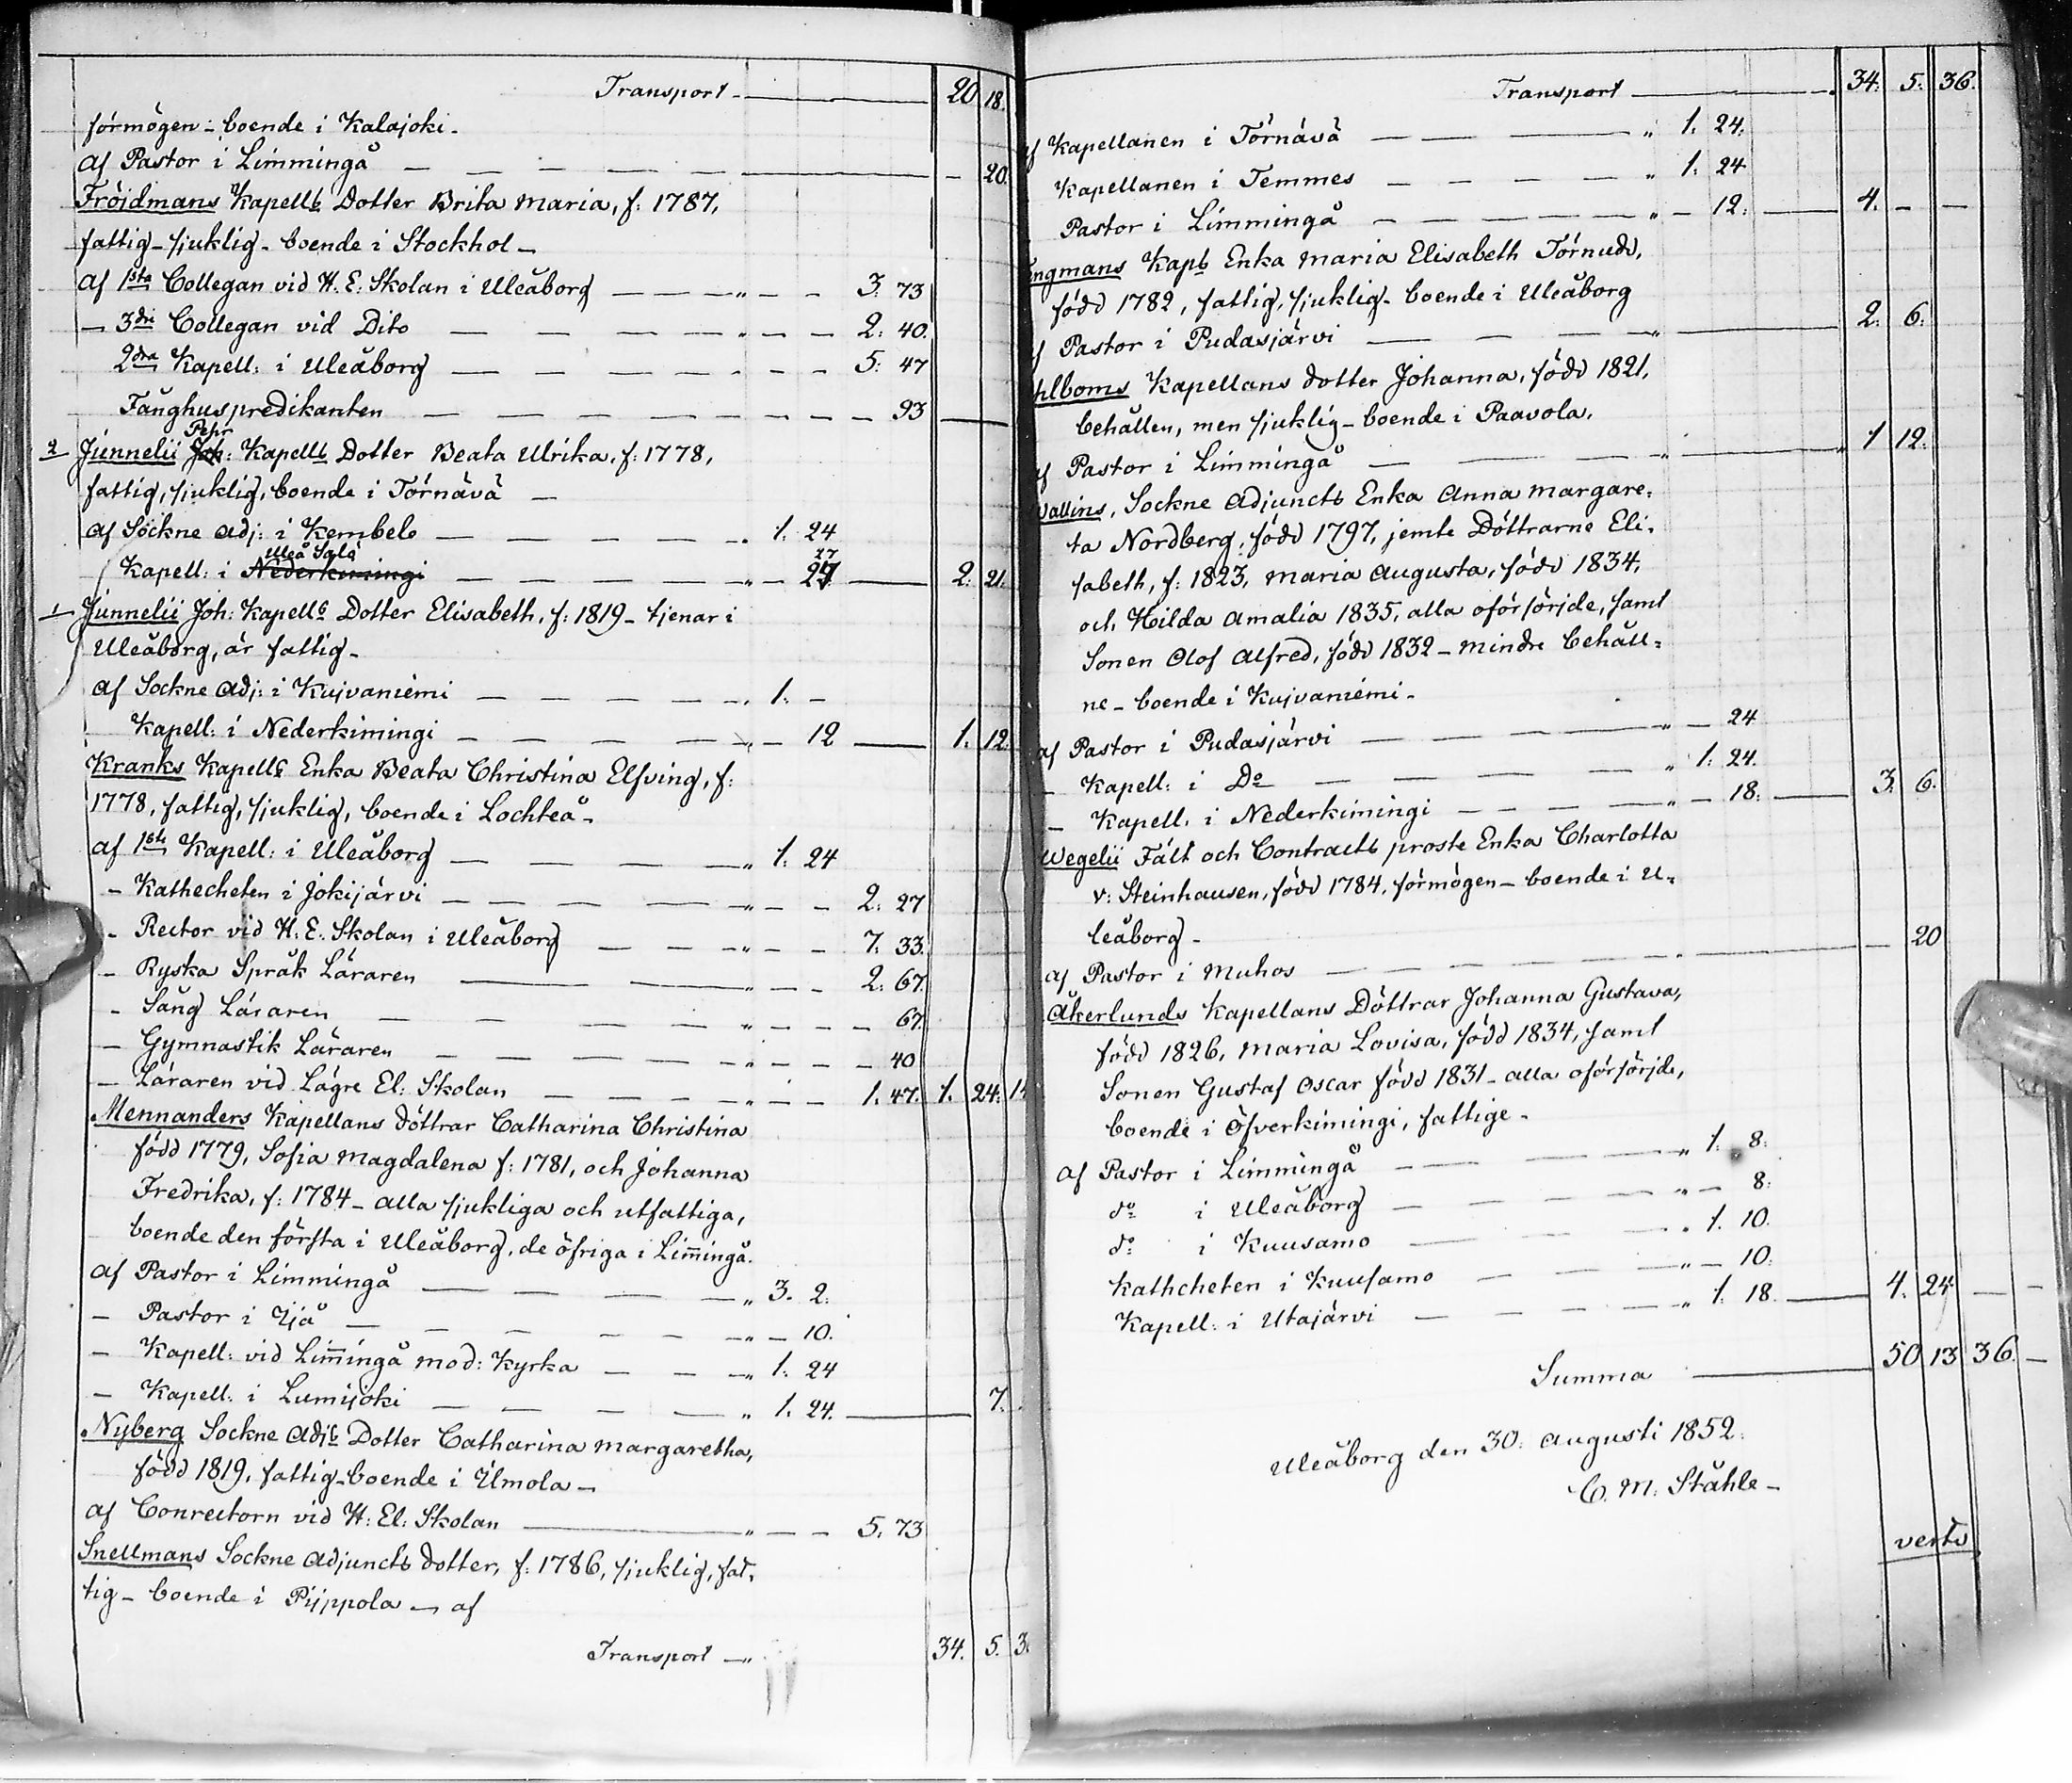 Transport 20 18.
förmögen - boende i Kalajoki.
af Pastor i Limmingå — 20.
Fröjdmans Kapells Dotter Brita Maria, f: 1787,
fattig - sjuklig - boende i Stockhol —
af 1sta Collegan vid H. E. Skolan i Uleåborg " — — 3. 73
— 3dri Collegan vid Dito " — — 2. 40.
2dra Kapell: i Uleåborg — — 5: 47
Fånghuspredikanten — — — 93
Pehr
2 Junnelii Joh: Kapells Dotter Beata Ulrika, f: 1778,
fattig, sjuklig, boende i Törnävä —
af Sockne Adj: i Kembele ". 1. 24
Uleå Salo 27
Kapell: i Nederkimingi " — 27 — 2. 21.
1 Junnelii Joh: Kapells Dotter Elisabeth, f: 1819 - tjenar i
Uleåborg, är fattig -
af Sockne Adj: i Kujvaniemi ". 1. —
Kapell: i Nederkimingi " — 12 — 1. 12.
Kranks Kapells Enka Beata Christina Elfving, f:
1778, fattig, sjuklig, boende i Lochteå -
af 1sta Kapell: i Uleåborg " 1. 24
— Kathecheten i Jokijärvi " — — 2: 27
- Rector vid H: E: Skolan i Uleåborg " — — 7. 33.
- Ryska Språk Läraren " — — 2: 67.
- Sång Läraren " — — — 67.
— Gymnastik Läraren " — — — 40
— Läraren vid Lägre El: Skolan " — — 1. 47. 1. 24:
Mennanders Kapellans döttrar Catharina Christina
född 1779, Sofia Magdalena f: 1781, och Johanna
Fredrika, f: 1784 - alla sjukliga och utfattiga,
boende den första i Uleåborg, de öfriga i Lim̅ingå.
af Pastor i Limmingå " 3. 2.
— Pastor i Ijå " — 10.
— Kapell: vid Lim̅ingå mod: Kyrka " 1: 24
— Kapell: i Lumijoki " 1. 24. — 7.
Nyberg Sockne Adjts Dotter Catharina Margaretha,
född 1819, fattig - boende i Ilmola —
af Conrectorn vid H: El: Skolan " — — 5. 73
Snellmans Sockne Adjuncts dotter, f: 1786, sjuklig, fat-
tig - boende i Pijppola — af
Transport — " 34. 5.
Transport 34. 5. 36.
af Kapellanen i Törnävä " 1. 24.
Kapellanen i Temmes " 1. 24
Pastor i Limmingå " — 12: — 4. — —
Kapls Enka Maria Elisabeth Törnudd,
född 1782, fattig, sjuklig - boende i Uleåborg
Pastor i Pudasjärvi " 2. 6.
Kapellans dotter Johanna, född 1821,
behållen, men sjuklig - boende i Paavola.
af Pastor i Limmingå " 1 12.
Wallins, Sockne Adjuncts Enka Anna Margare-
ta Nordberg, född 1797, jemte Döttrarne Eli-
sabeth, f: 1823, Maria Augusta, född 1834,
och Hilda Amalia 1835, alla oförsörjde, samt
Sonen Olof Alfred, född 1832 - mindre behåll-
ne - boende i Kujvaniemi -
af Pastor i Pudasjärvi " — 24
- Kapell: i Do " 1. 24.
— Kapell. i Nederkimingi " — 18. — 3. 6.
Wegelii Fält och Contracts proste Enka Charlotta
v: Steinhausen, född 1784, förmögen - boende i U-
leåborg -
af Pastor i Muhos — 20
Åkerlunds Kapellans Döttrar Johanna Gustava,
född 1826, Maria Lovisa, född 1834, samt
Sonen Gustaf Oscar född 1831 - alla oförsörjde,
boende i Öfverkimingi, fattige -
af Pastor i Limmingå " 1. 8:
do i Uleåborg " — 8:
do i Kuusamo " 1. 10.
Kathcheten i Kuusamo " — 10.
Kapell: i Utajärvi " 1. 18. — 4. 24 — —
Summa 50 13 36. —
Uleåborg den 30. Augusti 1852.
C. M. Ståhle -
verte